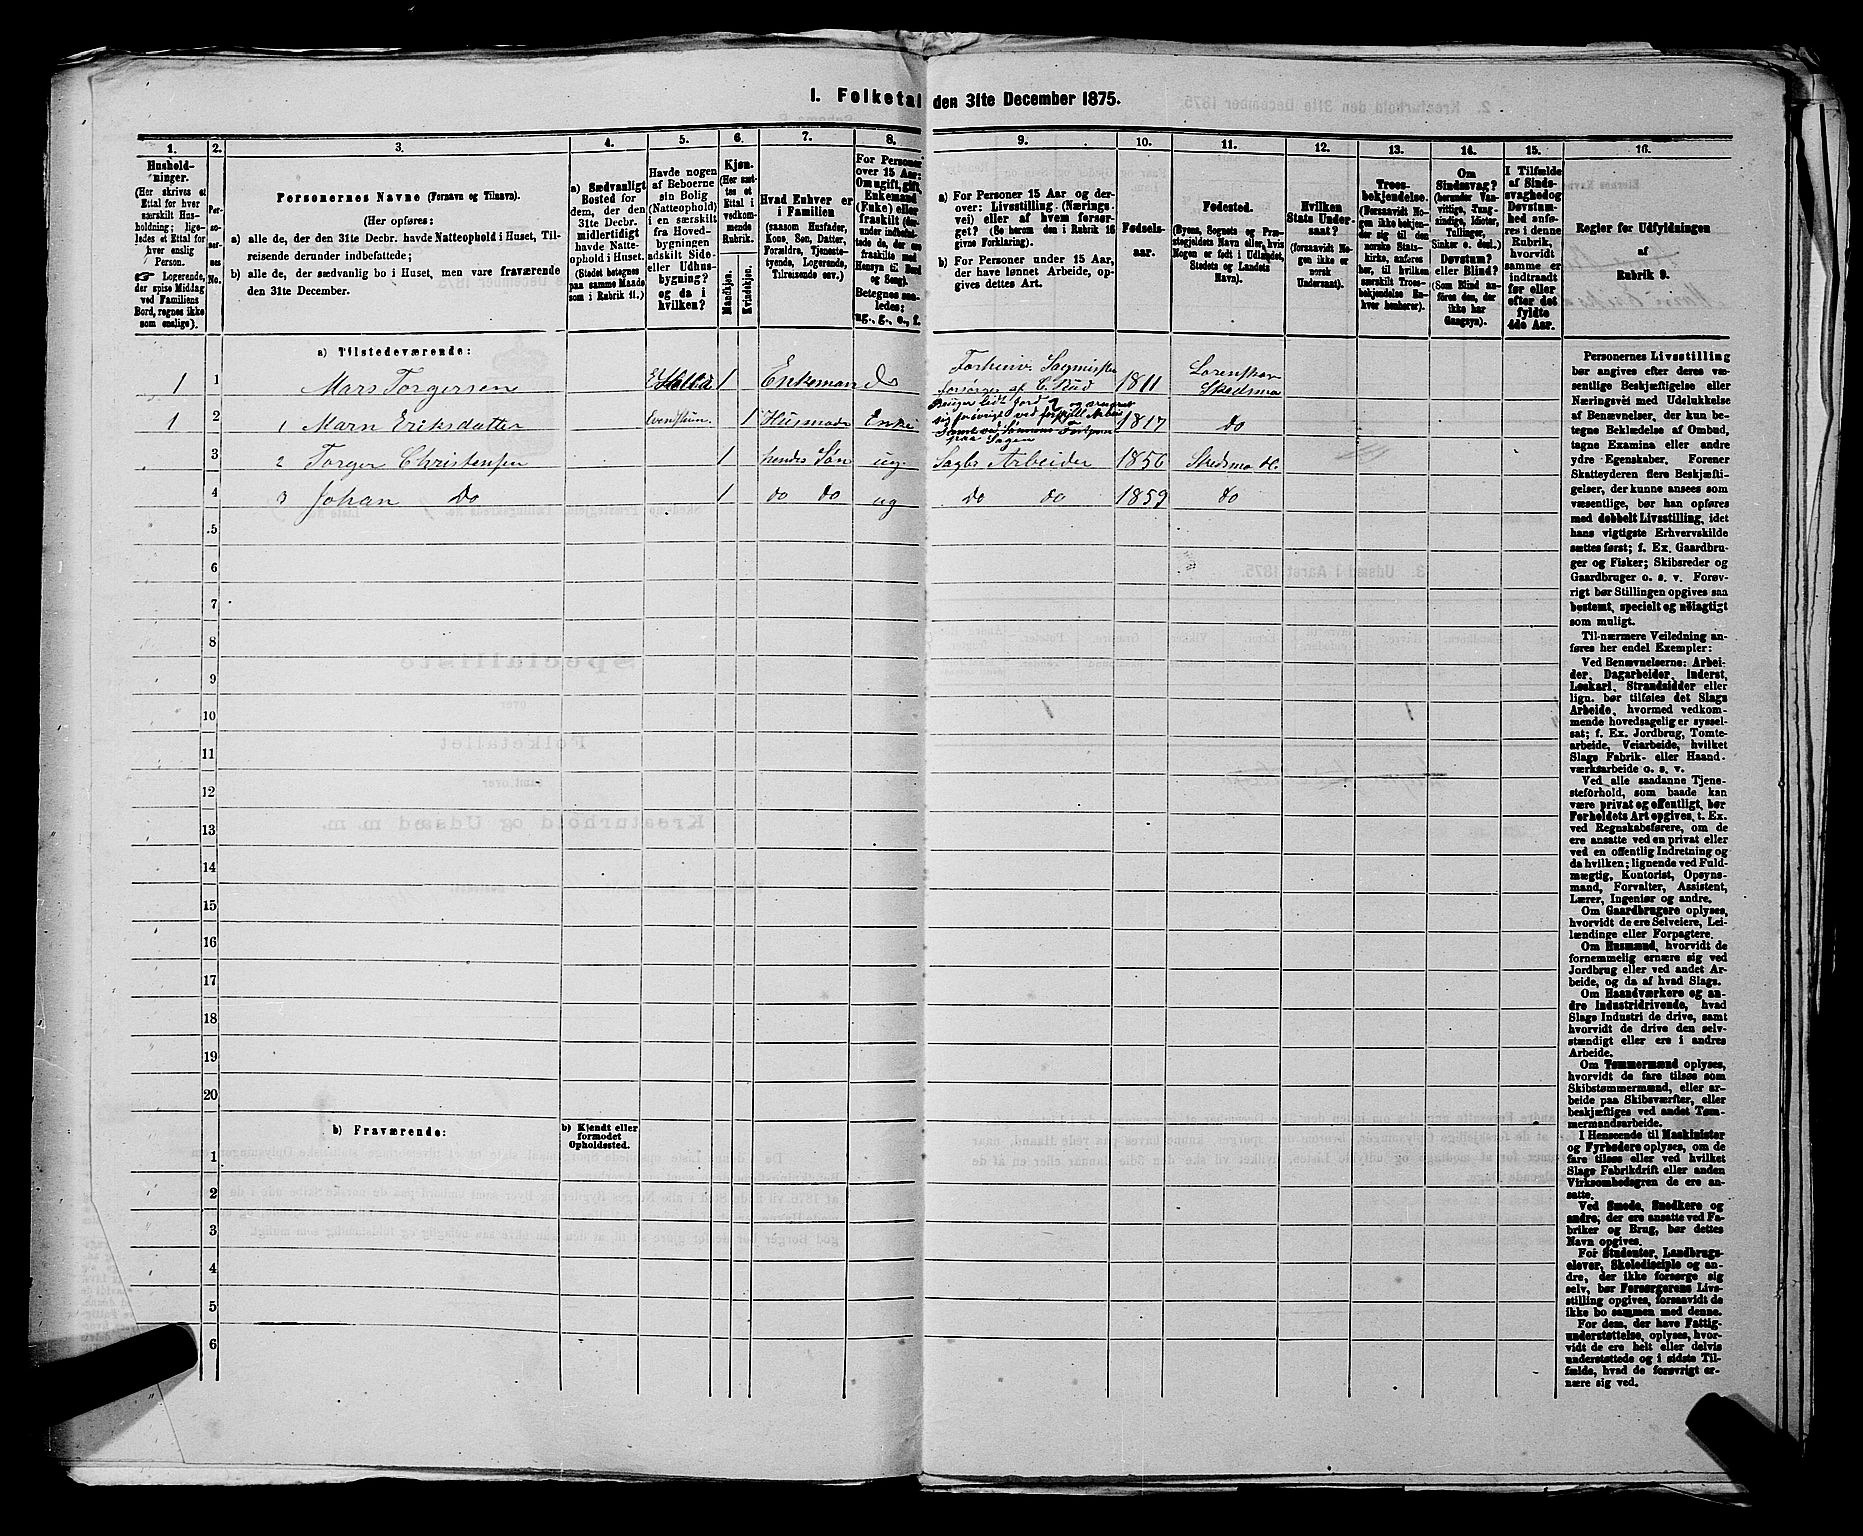 I. Folketal den 31te December 1875.
1. 2. 3. 4. 5. 6. 7. 8. 9. 10. 11. 12. 13. 14. 15. 16.
Hushold-
ninger.
(Her skrives et
Ettal for hver
særskilt Hus-
holdning; lige-
ledes et Ettal for
hver enslig
Person.
☞ Logerende,
der spise Middag
ved Familiens
Bord, regnes ikke
som enslige).
Per-
so-
ner-
nes
No.
Personernes Navne (Fornavn og Tilnavn).
(Her opføres:
a) alle de, der den 31te Decbr. havde Natteophold i Huset, Til-
reisende derunder indbefattede;
b) alle de, der sædvanlig bo i Huset, men vare fraværende
den 31te December.
a) Sædvanligt
Bosted for
dem, der den
31te Decbr.
midlertidigt
havde Natte-
ophold i Huset.
(Stedet betegnes
paa samme Maade
som i Rubrik 11.)
Havde nogen
af Beboerne
sin Bolig
(Natteophold)
i en særskilt
fra Hoved-
bygningen
adskilt Side-
eller Udhus-
bygning?
og da i
hvilken?
Kjøn.
(Her sæt-
tes et
Ettal i
vedkom-
mende
Rubrik.
Mandkjøn.
Kvindekjøn.
Hvad Enhver er
i Familien
(saasom Husfader,
Kone, Søn, Datter,
Forældre, Tjeneste-
tyende, Logerende,
Tilreisende osv.)
For Personer
over 15 Aar:
Om ugift, gift,
Enkemand
(Enke) eller
fraskilt
Betegnes saa-
ledes:
ug., g., e., f.
a) For Personer 15 Aar og der-
over: Livsstilling (Nærings-
vei) eller af hvem forsør-
get? (Se herom den i Rubrik 16
givne Forklaring).
b) For Personer under 15 Aar,
der have lønnet Arbeide, op-
gives dettes Art.
Fødsels-
aar.
Fødested.
(Byens, Sognets og Præ-
stegjeldets Navn eller, hvis
Nogen er født i Udlandet,
Stedets og Landets
Navn).
Hvilken
Stats Under-
saat?
(forsaavidt No-
gen ikke er
norsk
Undersaat).
Troes-
bekjendelse.
(Forsaavidt No-
gen ikke bekjen-
der sig til den
norske Stats-
kirke, anføres
her, til hvilken
særskilt Troes-
bekjendelse En-
hver henhører).
Om
Sindssvag?
(herunder Van-
vittige, Tung-
sindige, Idioter,
Tullinger,
Sinker o. desl.)
Døvstum?
eller Blind?
(Som Blind an-
føres den, der
ikke har
Gangsyn).
I Tilfælde
af Sinds-
svaghed og
Døvstum-
hed anfø-
res i denne
Rubrik,
hvorvidt
samme er
indtraadt
før eller
efter det
fyldte
4de Aar.
Regler for Udfyldningen
af
Rubrik 9.
a) Tilstedeværende:
1 1 Mars Torgersen 1 Enkemand do Forhenv. Sagmester
forsørges af C. Rud 1811 Lørenskov
Skedsmo
1 2 1 Marn Eriksdatter 1 Husmode Enke 1817 do
3 2 Torger Christensen 1 hendes Søn ug. Sagbr Arbeider 1856 Skedsmo
4 3 Johan Do 1 do do ug do do 1859 do
5
6
7
8
9
10
11
12
13
14
15
16
17
18
19
20
b) Fraværende:
b) Kjendt eller
formodet
Opholdssted.
1
2
3
4
5
6
Personernes Livsstilling
bør angives efter deres væ-
sentlige Beskjæftigelse eller
Næringsvei med Udelukkelse
af Benævnelser, der kun be-
tegne Beklædelse af Ombud,
tagne Examina eller andre
ydre Egenskaber. Forener
Skatteyderen flere Beskjæfti-
gelser, der kunne ansees som
væsentlige, bør han opføres
med dobbelt Livsstilling, idet
hans vigtigste Erhvervskilde
sættes først; f. Ex. Gaardbru-
ger og Fisker; Skibsreder og
Gaardbruger o. s. v. Forøv-
rigt bør Stillingen opgives saa
bestemt, specielt og nøiagtigt
som muligt.
Til nærmere Veiledning an-
føres her endel Exempler:
Ved Benævnelserne: Arbei-
der, Dagarbeider, Inderst,
Løskarl, Strandsidder eller
lign. bør tilføies det Slags
Arbeide, hvormed vedkom-
mende hovedsagelig er syssel-
sat; f. Ex. Jordbrug, Tomte-
arbeide, Veiarbeide, hvilket
Slags Fabrik- eller Haand-
værksarbeide o. s. v.
Ved alle saadanne Tjene-
steforhold, som baade kan
være privat og offentligt, bør
Forholdets Art opgives, t. Ex.
ved Regnskabsførere, om de
ere ansatte ved en privat eller
ved en offentlig Indretning og
da hvilken; lignende ved Fuld-
mægtig, Kontorist, Opsyns-
mand, Forvalter, Assistent,
Lærer, Ingeniør og andre.
Om Gaardbrugere oplyses,
hvorvidt de ere Selveiere, Lei-
lændinge eller Forpagtere.
Om Husmænd, hvorvidt de
fornemmelig ernære sig ved
Jordbrug eller ved andet Ar-
beide, og da af hvad Slags.
Om Haandværkere og an-
dre Industridrivende, hvad
Slags Industri de drive, samt
hvorvidt de drive den selv-
stændigt eller ere i andres
Arbeide.
Om Tømmermænd oplyses,
hvorvidt de fare tilsøs som
Skibstømmermænd, eller ar-
beide paa Skibsværfter, eller
beskjæftiges ved andet Tøm-
mermandsarbeide.
I Henseende til Maskinister
og Fyrbødere oplyses, om de
fare tilsøs eller ved hvilket
Slags Fabrikdrift eller anden
Virksomhedsgren de ere an-
satte.
Ved Smede, Snedkere og
andre, der ere ansatte ved Fa-
briker og Brug, bør dettes
Navn opgives.
For Studenter, Landbrugs-
elever, Skoledisciple og an-
dre, der ikke forsørge sig
selv, bør Forsørgerens Livs-
stilling opgives, forsaavidt de
ikke bo sammen med denne.
For dem, der have Fattig-
understøttelse, oplyses, hvor-
vidt de ere helt eller delvis
understøttede og i sidste Til-
fælde, hvad de forøvrigt er-
nære sig ved.